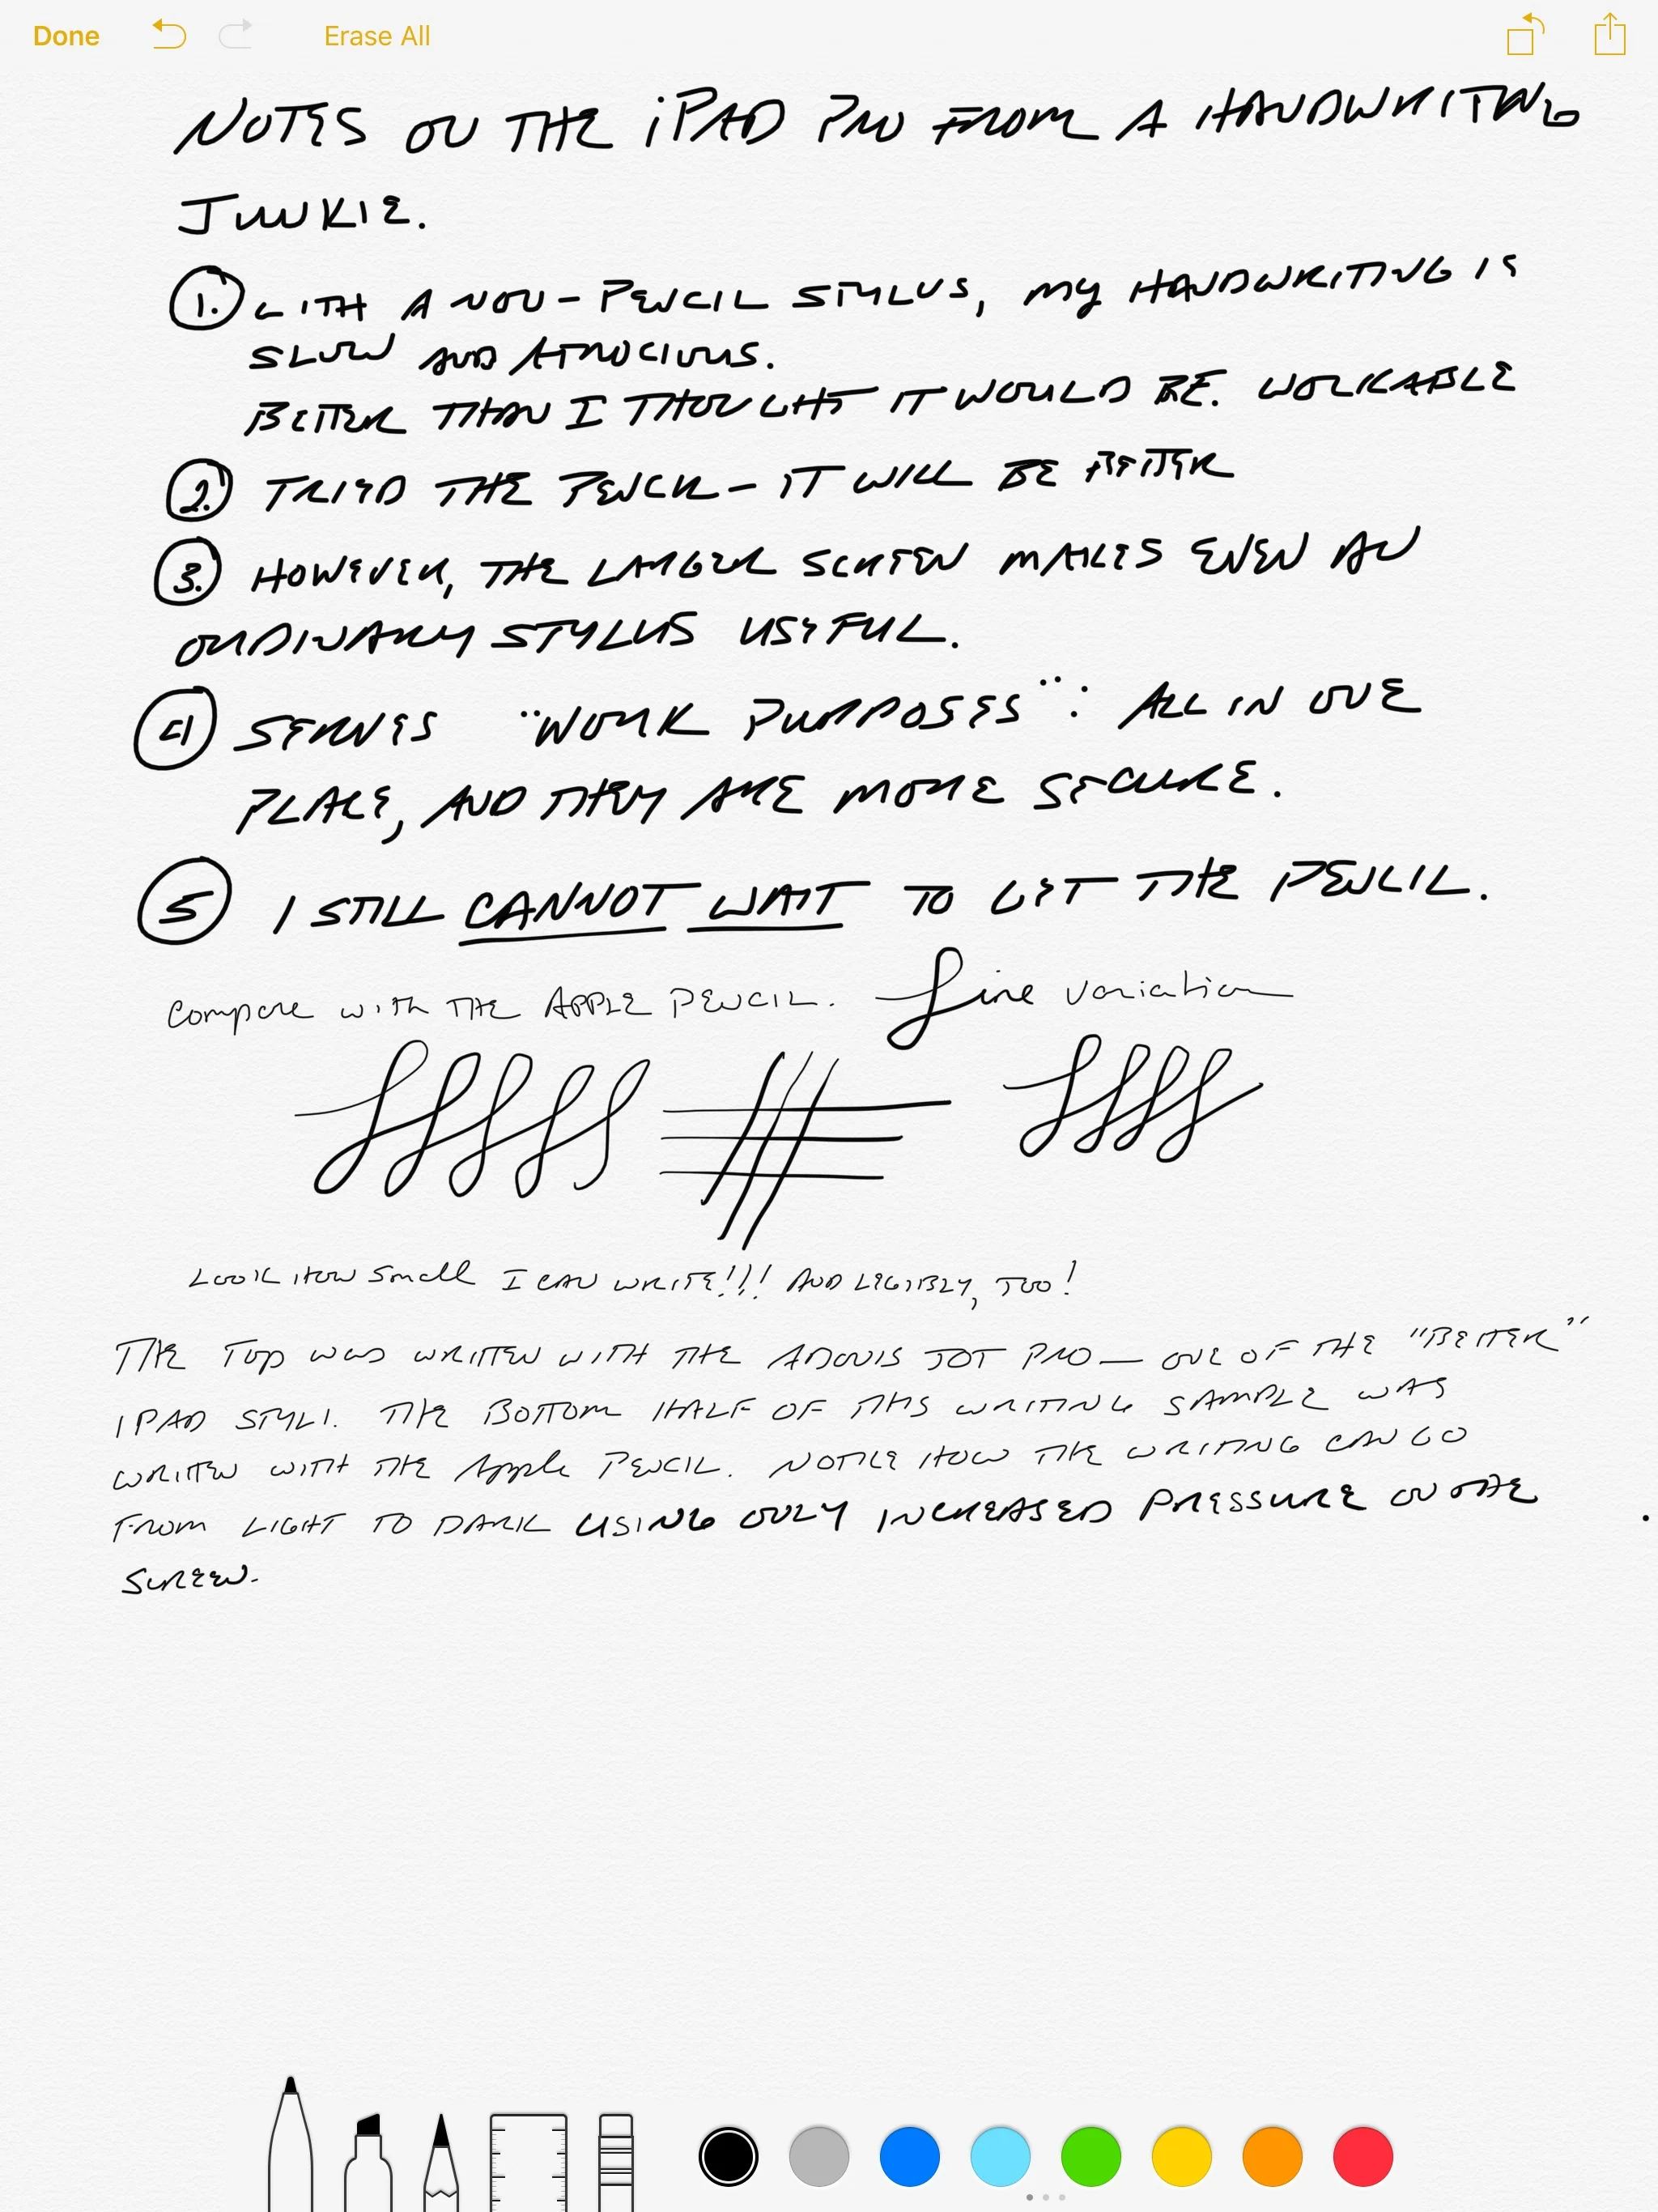 Done Erase All
NOTES ON THE iPAD PRO FROM A HANDWRITING
JUNKIE.
1. WITH A NON-PENCIL STYLUS, MY HANDWRITING IS
SLOW AND ATROCIOUS.
BETTER THAN I THOUGHT IT WOULD BE. WORKABLE
2. TRIED THE PENCIL - IT WILL BE BETTER
3. HOWEVER, THE LARGER SCREEN MAKES EVEN AN
ORDINARY STYLUS USEFUL.
4 SERVES "WORK PURPOSES": ALL IN ONE
PLACE, AND THEY ARE MORE SECURE.
5 I STILL CANNOT WAIT TO GET THE PENCIL.
Compare with THE APPLE PENCIL. Line variation
LOOK HOW Small I CAN WRITE!!! AND LEGIBLY, TOO!
THE TOP WAS WRITTEN WITH THE ADONIS JOT PRO — ONE OF THE "BETTER"
IPAD STYLI. THE BOTTOM HALF OF THIS WRITING SAMPLE WAS
WRITTEN WITH THE Apple PENCIL. NOTICE HOW THE WRITING CAN GO
FROM LIGHT TO DARK USING ONLY INCREASED PRESSURE ON THE
SCREEN.